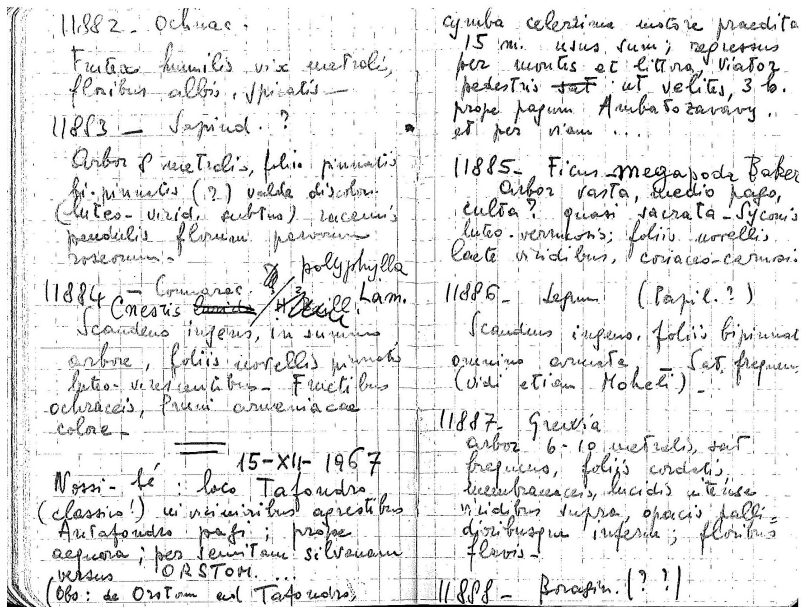 11882 - Ochnac.
Frutex humilis vix metralis,
floribus albis, spicatis -
11883 - Sapind. ?
Arbor 8 metralis, foliis pinnatis
bi-pinnatis (?) valde discolor.
(luteo-virid. subtus) racemis
pendulis florum parvorum
roseorum -
11884 - Connarac. polyphylla
Cnestis lucida / Lam.
Scandens ingens, in summa
arbore, foliis novellis pinnatis
luteo-virescentibus - Fructibus
ochraceis, Pruni armeniacae
colore -
15-XII-1967
Nossi-bé : loco Tafondro
(classico!) in vicinioribus agrestibus
Antafondro pagi ; prope
aequora ; per semitam silvanam
versus ORSTOM ...
(Obs : de Orstom ad Tafondro,
cymba celerrima motore praedita
15 m. usus sum ; regressus
per montes et littora, viator
pedestris sat ut velites, 3 h.
prope pagum Ambatozavavy.
et per viam ...
11885 - Ficus megapoda Baker
Arbor vasta, medio pago,
culta? quasi sacrata - Syconis
luteo-verrucosis ; foliis novellis
laete viridibus, coriaceo-carnosis
11886 - Legum (Papil. ?)
Scandens ingens, foliis bipinnat
omnino armata - Sat frequens
(vidi etiam Moheli) -
11887 - Grewia
arbor 6-10 metralis, sat
frequens, foliis cordatis,
membranaceis, lucidis intense
viridibus supra, opacis palli-
dioribusque inferne ; floribus
flavis -
11888 - Boragin. (??)